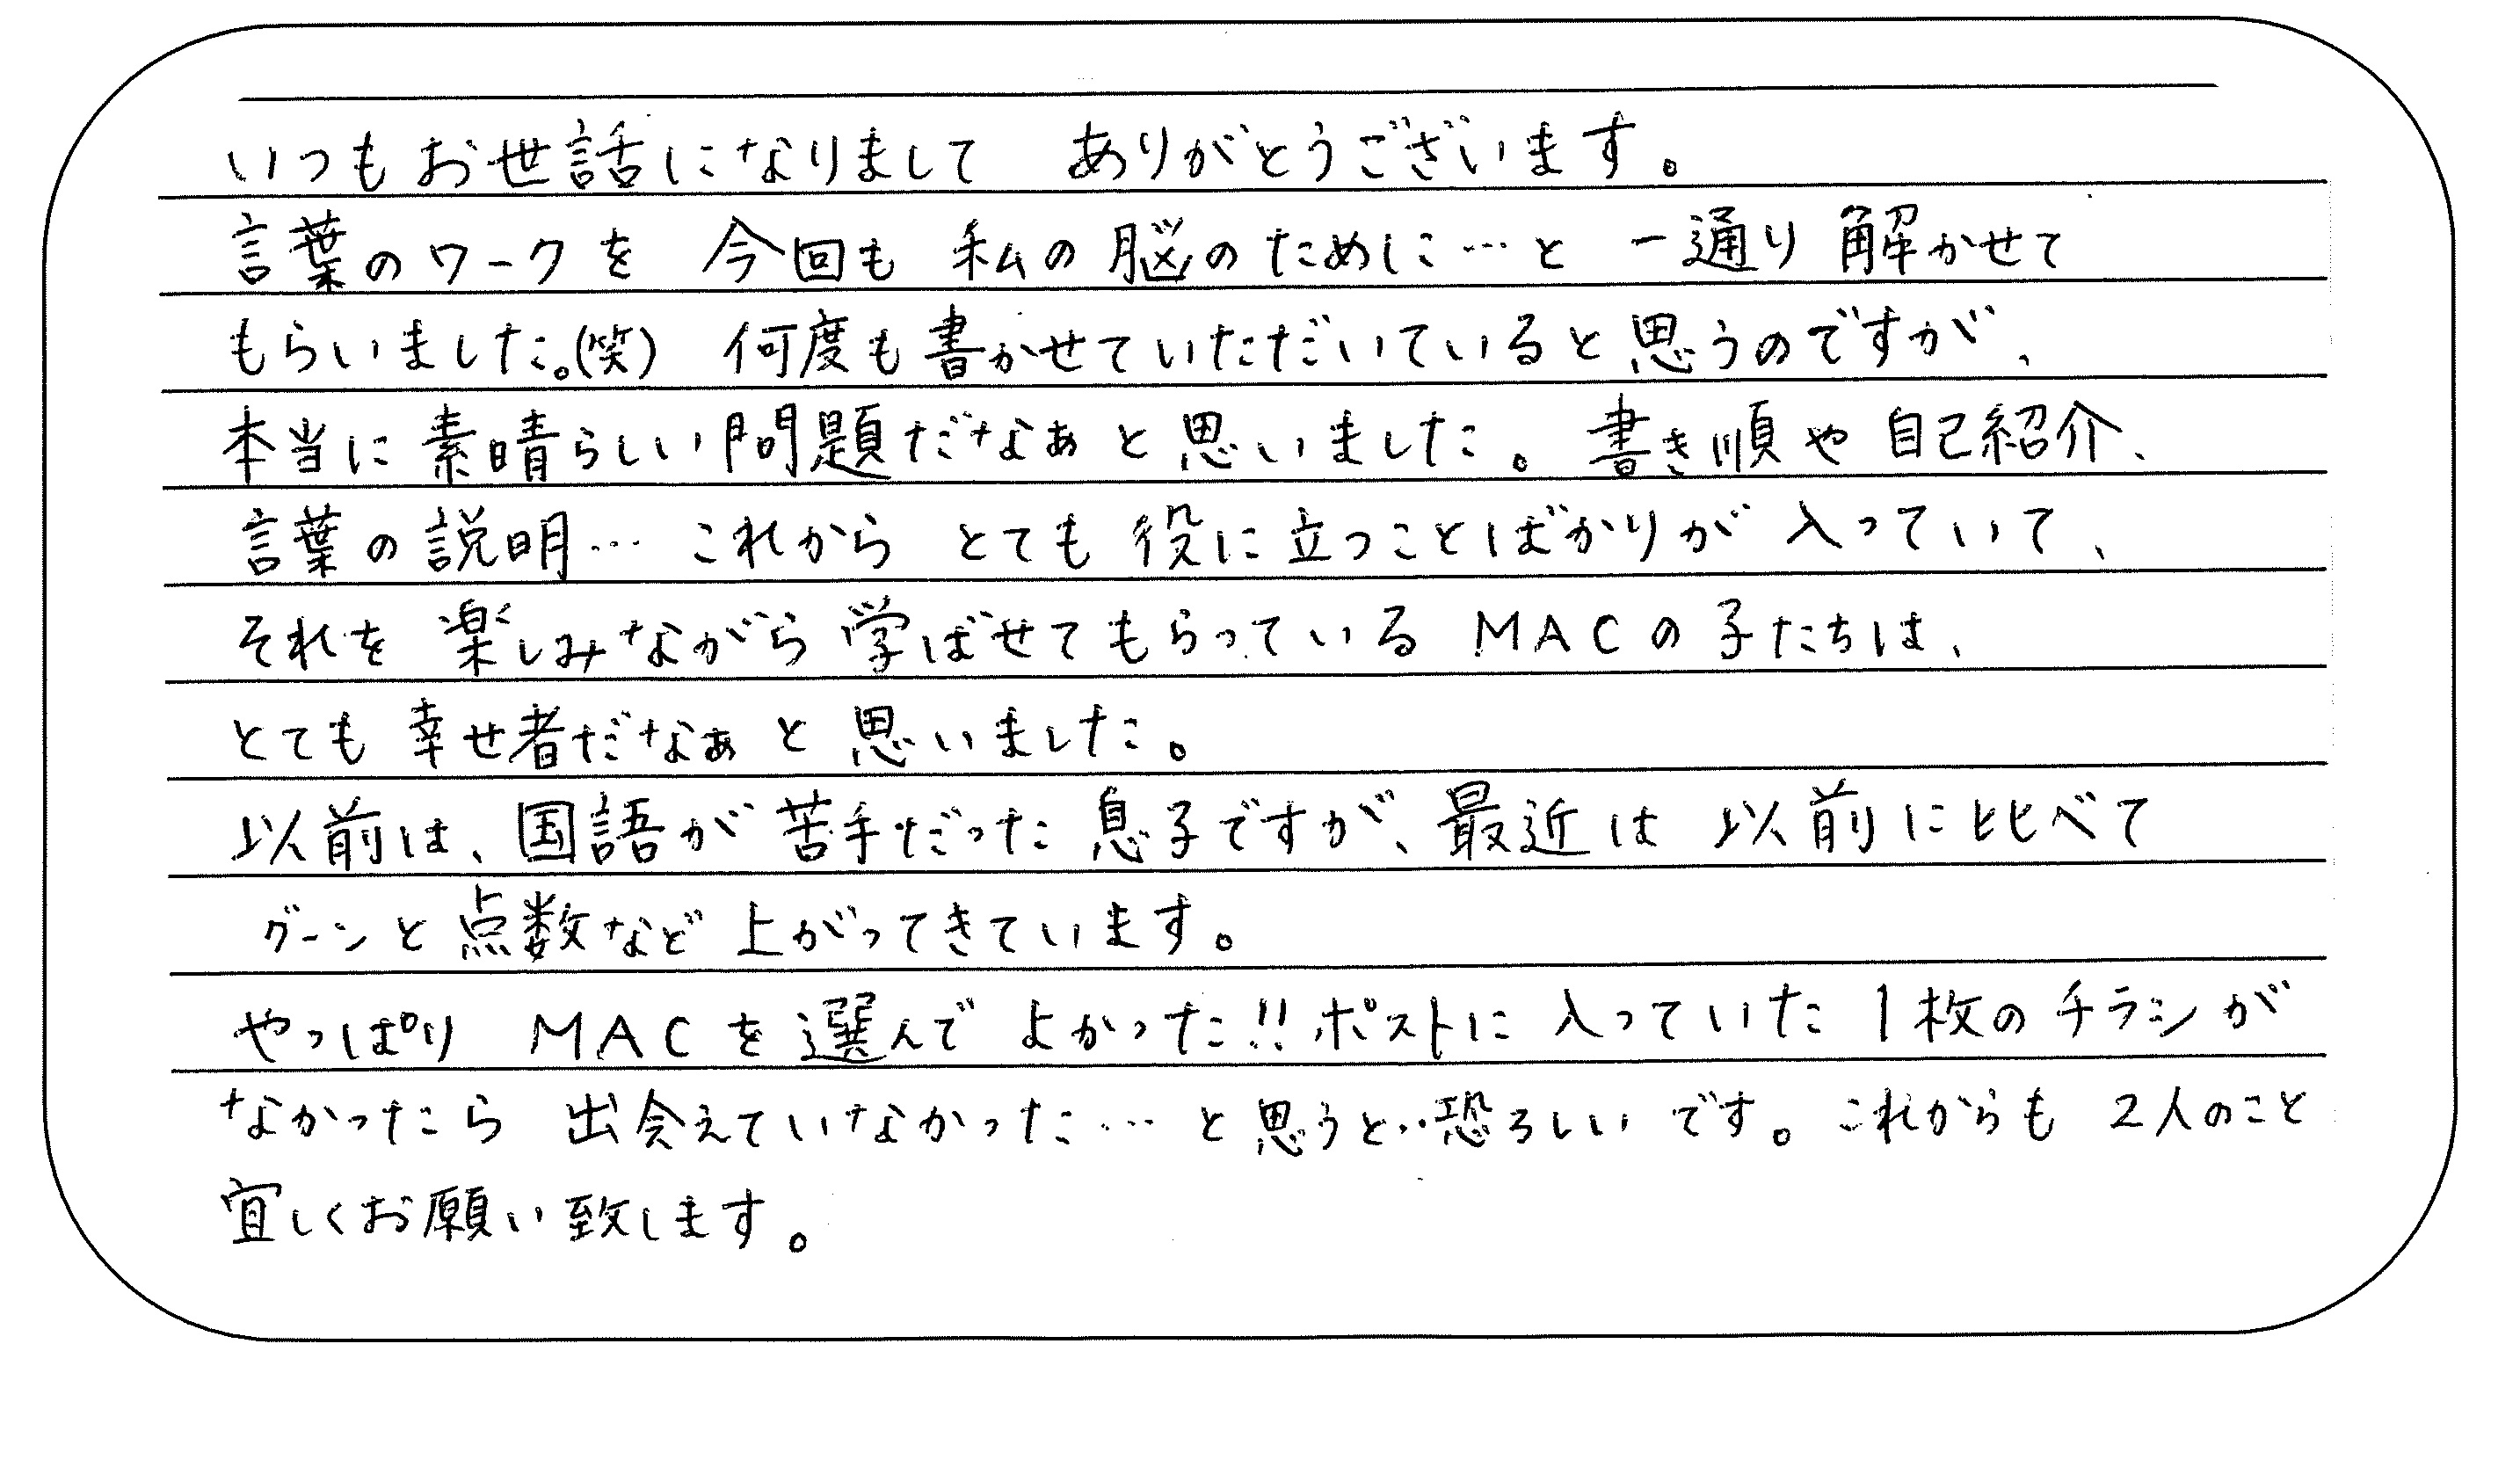 いつもお世話になりまして ありがとうございます。
言葉のワークを 今回も 私の脳のために…と 一通り解かせて
もらいました。(笑) 何度も書かせていただいていると思うのですが、
本当に素晴らしい問題だなぁと思いました。書き順や自己紹介、
言葉の説明… これから とても役に立つことばかりが入っていて、
それを楽しみながら学ばせてもらっている MACの子たちは、
とても幸せ者だなぁと思いました。
以前は、国語が苦手だった息子ですが、最近は以前に比べて
グーンと点数など上がってきています。
やっぱり MACを選んで よかった!!ポストに入っていた1枚のチラシが
なかったら 出会えていなかった…と思うと‥恐ろしいです。これからも2人のこと
宜しくお願い致します。